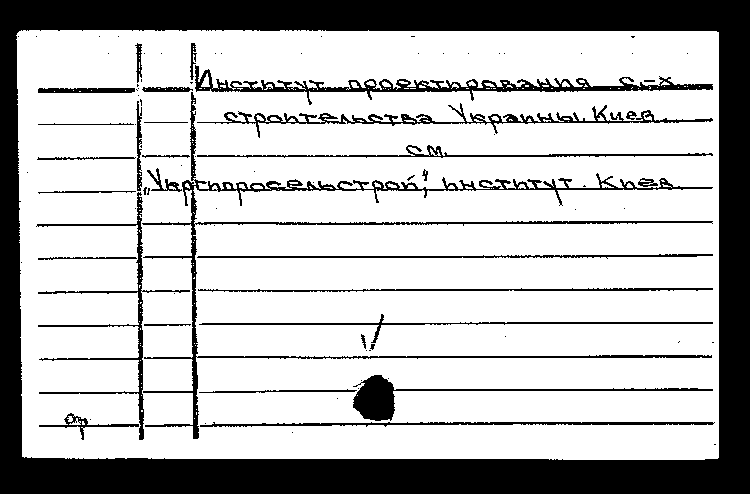 Институт проектирования с.-х.
строительства Украины. Киев.
см.
„Укргипросельстрой“, институт. Киев.